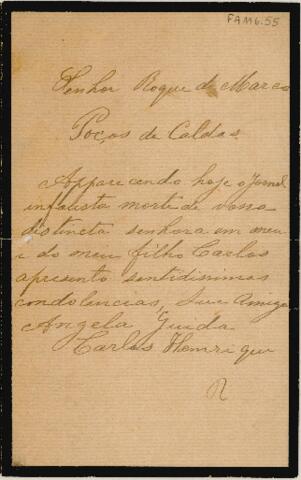 FAM6.55
Senhor Roque de Marco
Poços de Caldas
Apparecendo hoje o Jornal
infausta morte de vossa
distincta senhora em meu
i do meu filho Carlos
apresento sentidissimas
condolencias, sua Amiga
Angela Guida
Carlos Henrique